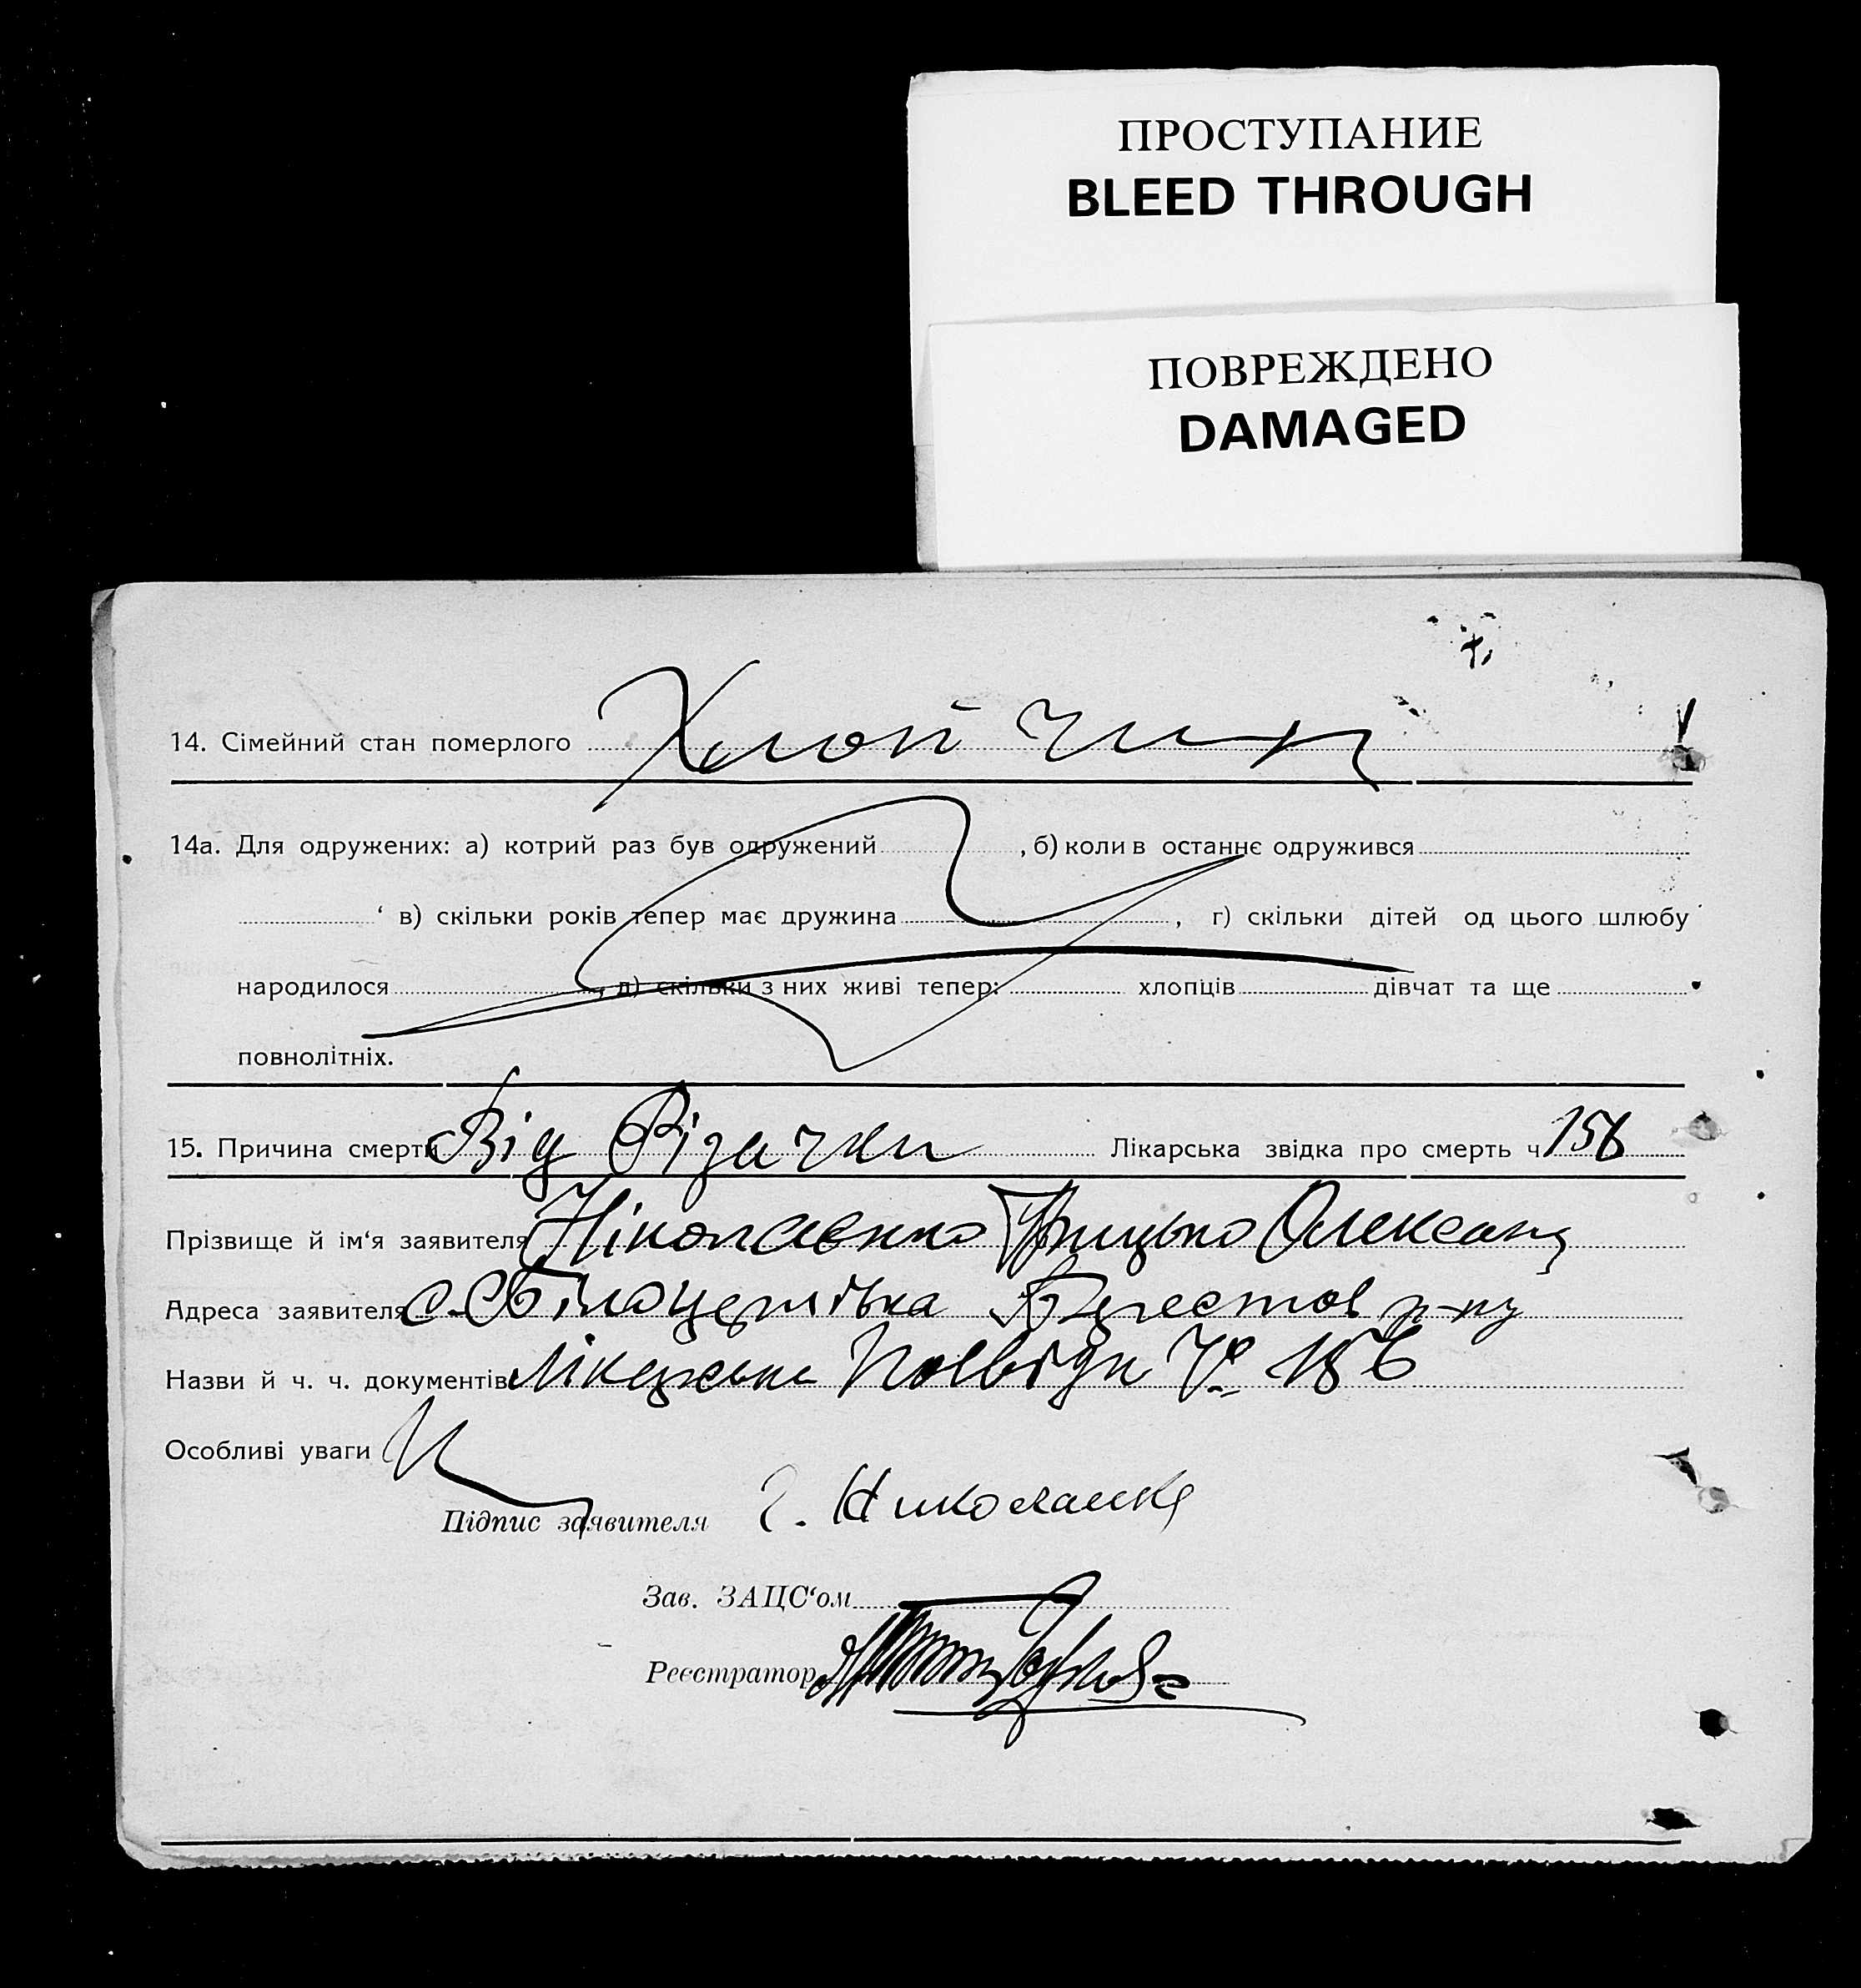 ПРОСТУПАНИЕ
BLEED THROUGH
ПОВРЕЖДЕНО
DAMAGED
14. Сімейний стан померлого Хлопчик
14а. Для одружених: а) котрий раз був одружений , б) коли в останнє одружився
‘ в) скільки років тепер має дружина , г) скільки дітей од цього шлюбу
народилося , д) скільки з них живі тепер: хлопців дівчат та ще
повнолітніх.
15. Причина смерти Від Різачки Лікарська звідка про смерть ч. 156
Прізвище й ім‘я заявителя Ніколаєнко Грицько Олександ
Адреса заявителя с. Білоцерківка р-ну
Назви й ч. ч. документів Лікарська № 156
Особливі уваги
Підпис заявителя Г. Николаенко
Зав. ЗАЦС‘ом
Реєстратор